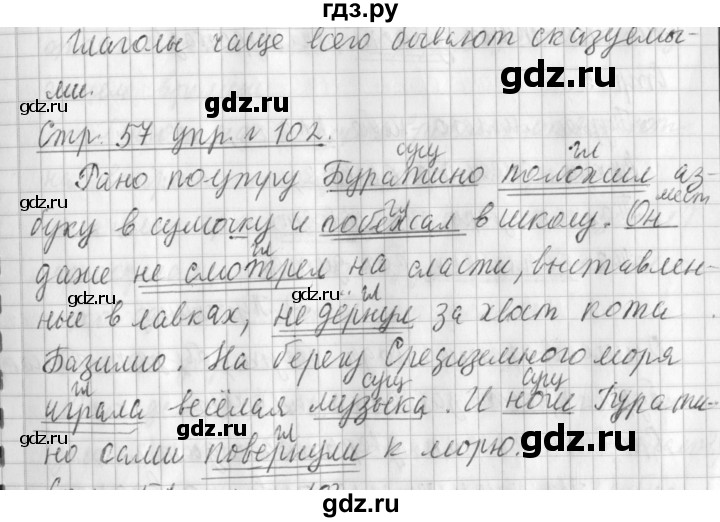 гдз.ру
Глаголы чаще всего бывают сказуемы-
ми.
gdz.ru gdz.ru gdz.ru
Стр. 57 упр. № 102.
сущ гл
Рано поутру Буратино положил аз-
гл мест
буку в сумочку и побежал в школу. Он
gdz.ru gdz.ru
гл
даже не смотрел на сласти, выставлен-
gdz.ru gdz.ru gdz.ru
гл
ные в лавках, не дёрнул за хвост кота
Базилио. На берегу Средиземного моря
gdz.ru gdz.ru
гл сущ сущ
играла весёлая музыка. И ноги Бурати-
gdz.ru gdz.ru gdz.ru
гл
но сами повернули к морю.
gdz.ru